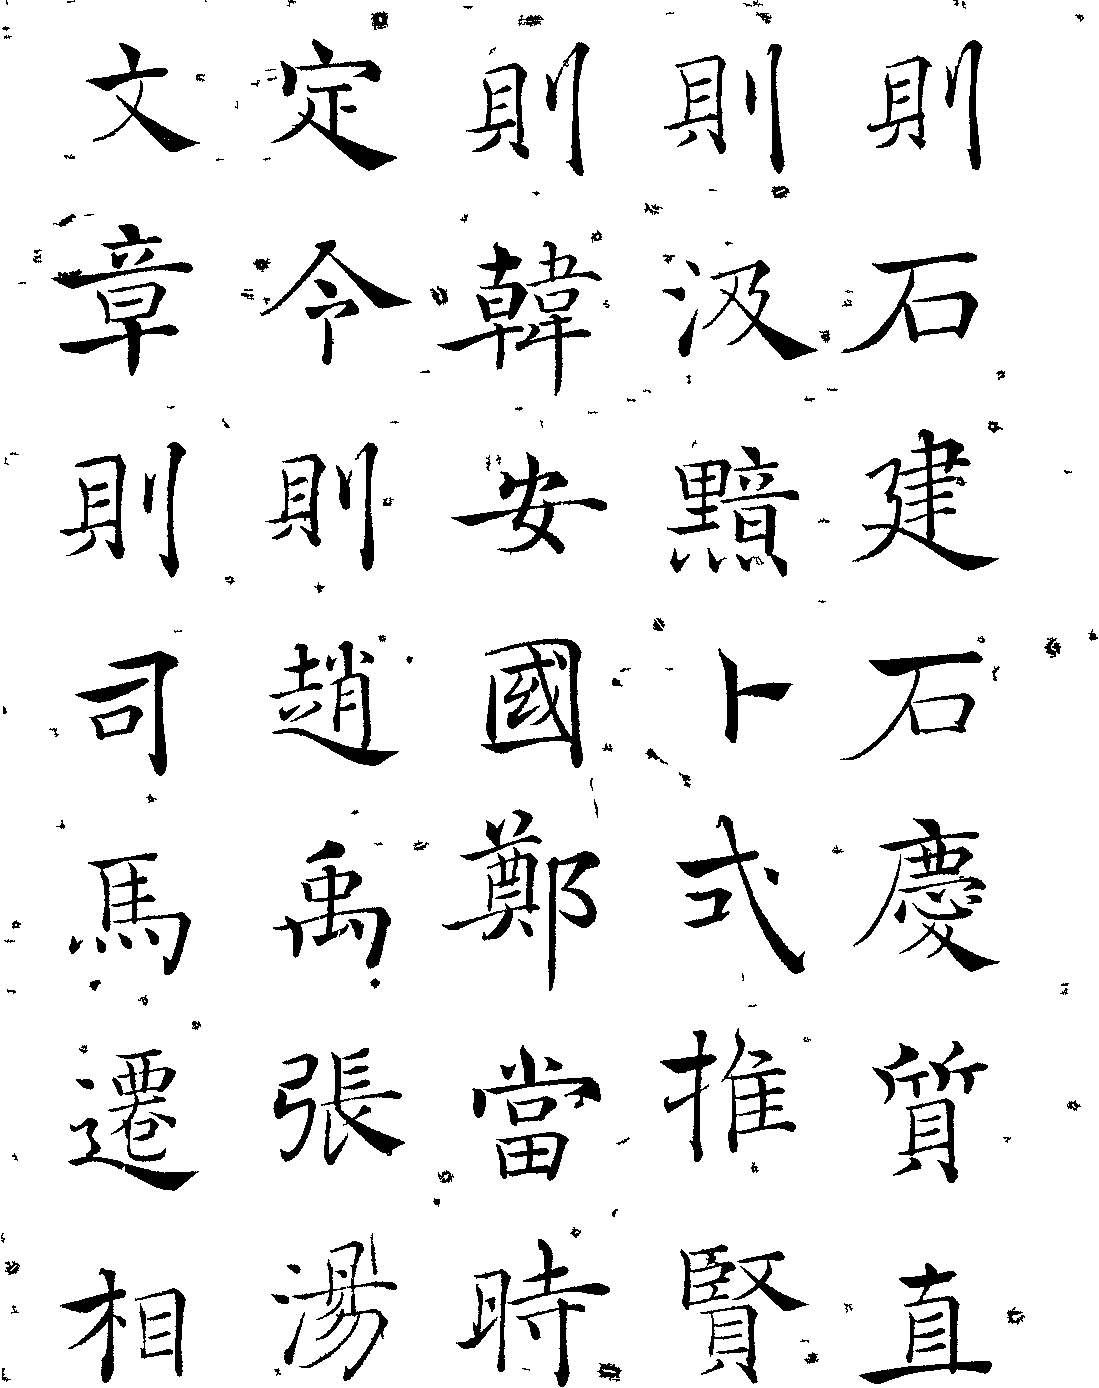 則石建石慶質直
則汲黯卜式推賢
則韓安國鄭當時
定令則趙禹張湯
文章則司馬遷相